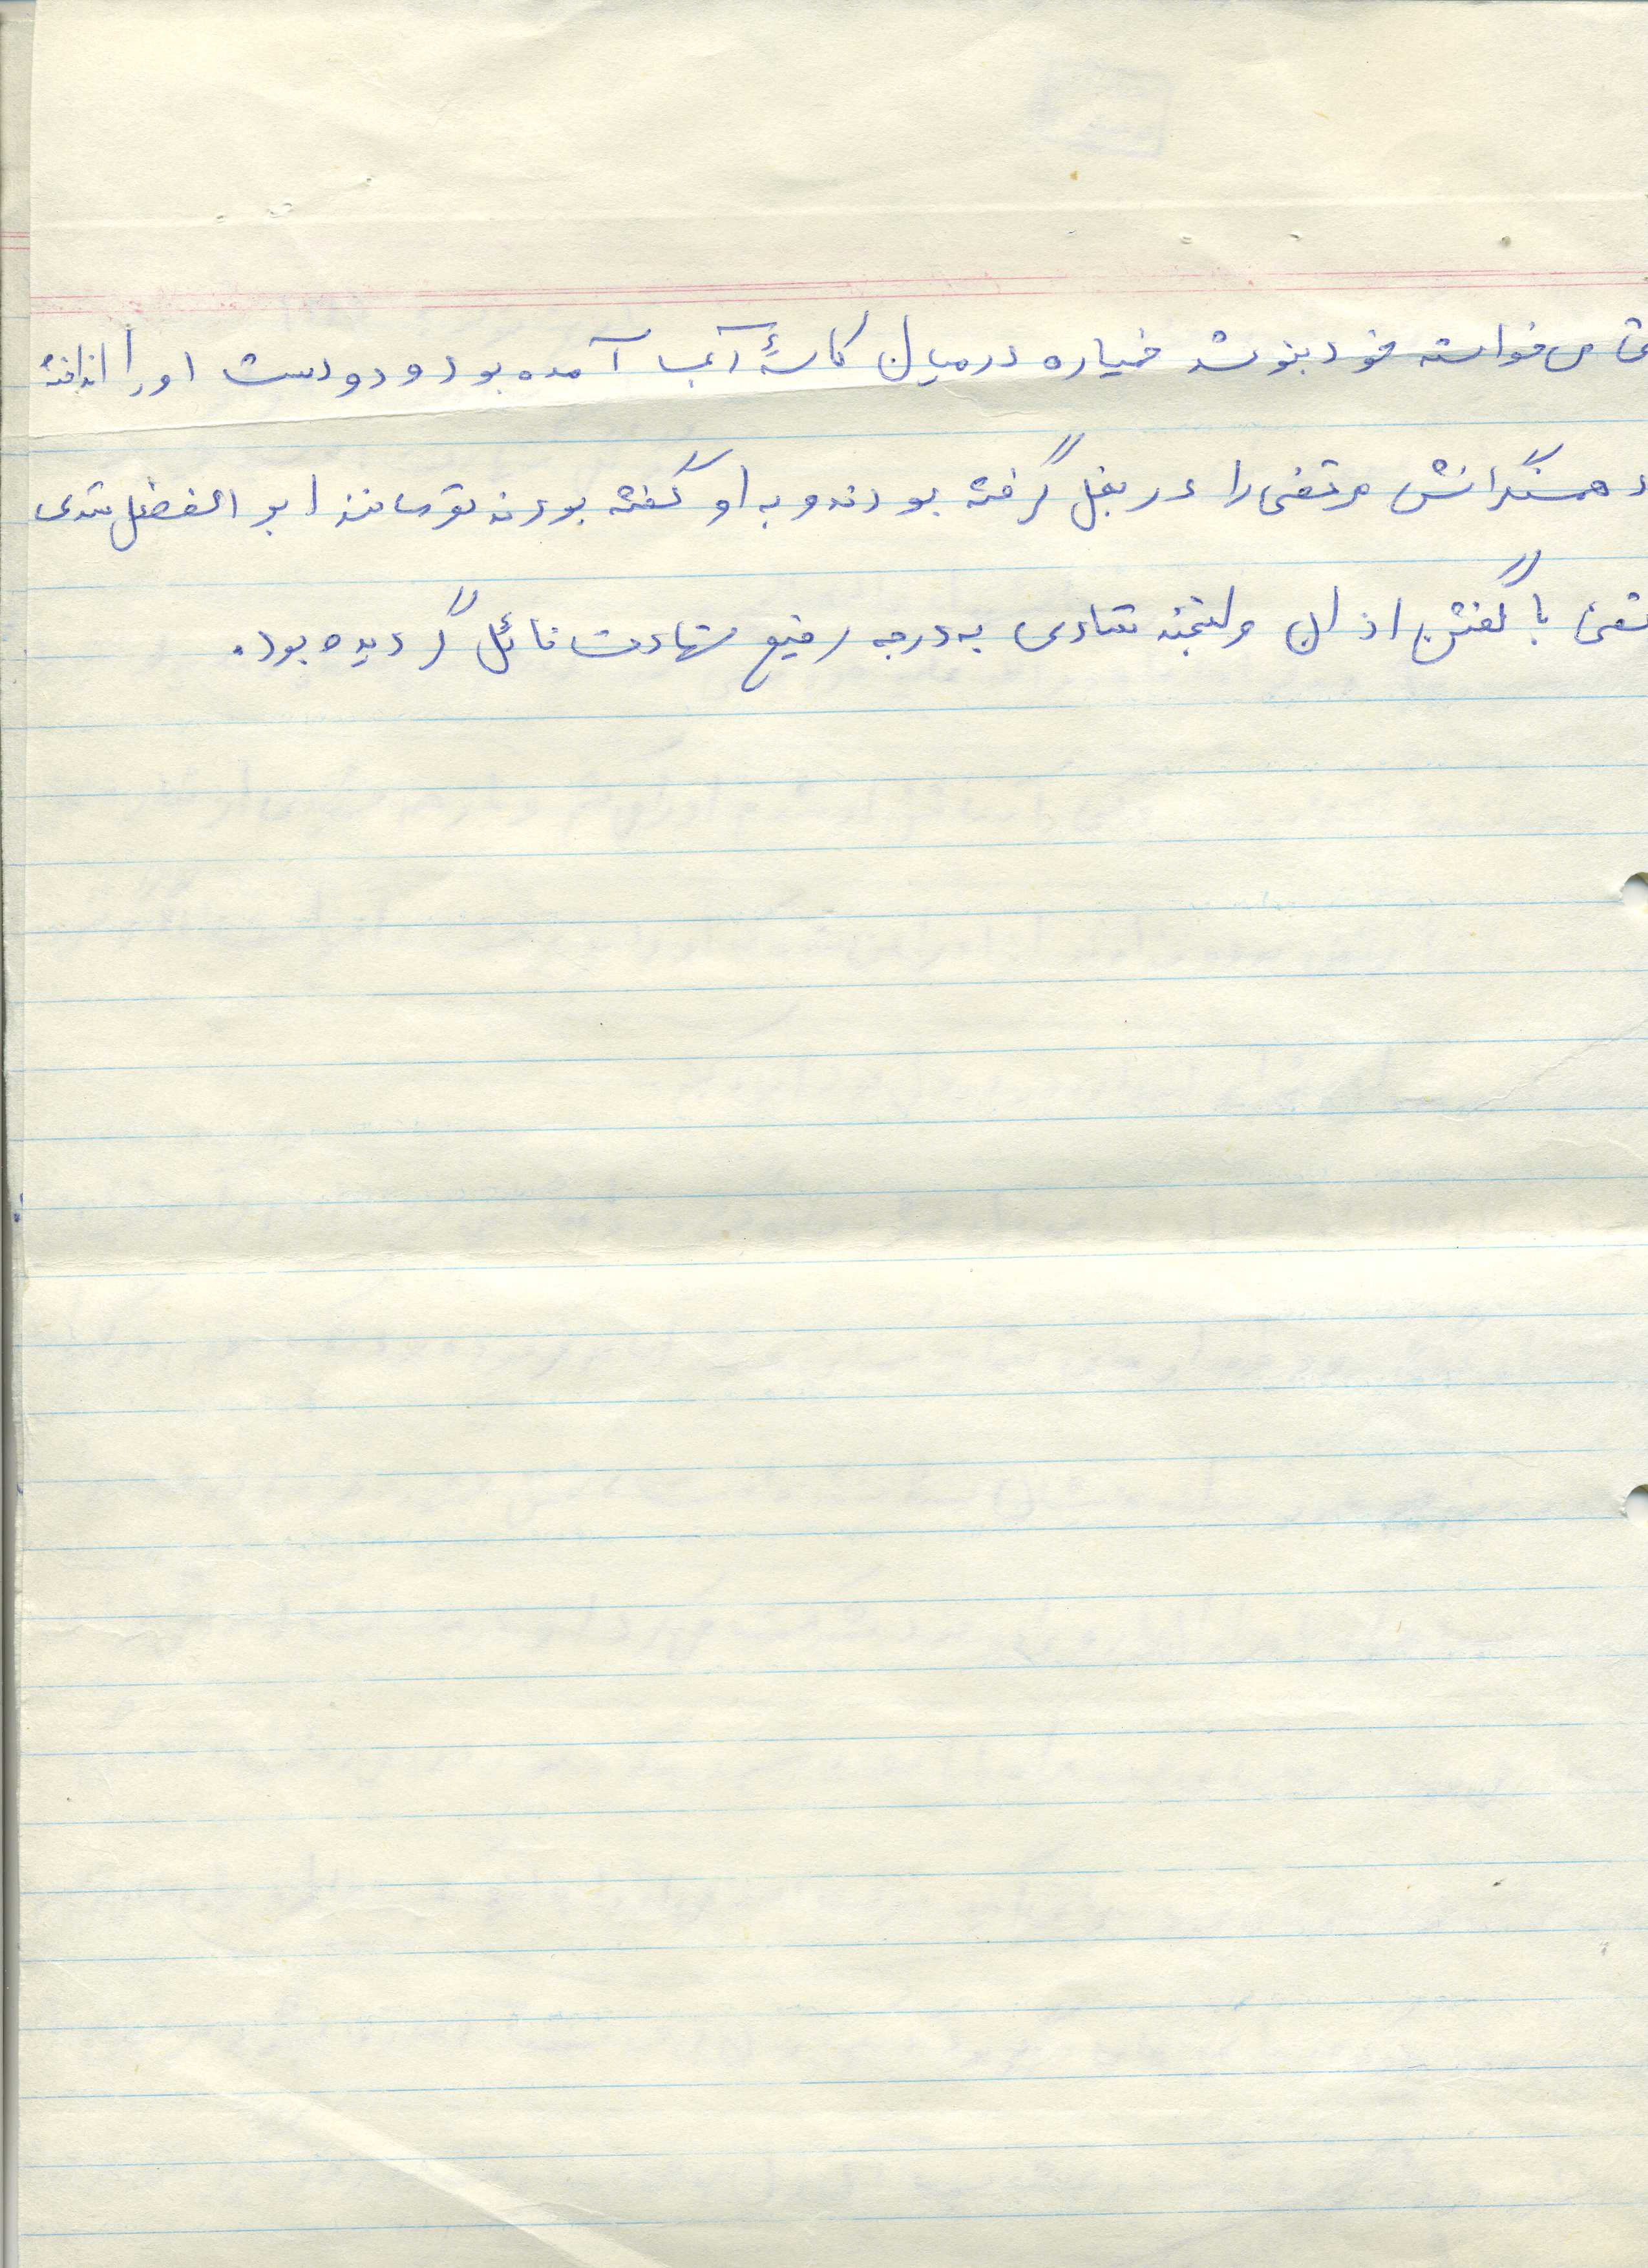 می خواسته خود بنوشد خمپاره در میان کاسهٔ آب آمده بود و دو دست او را انداخته
همسنگرانش مرتضی را در بغل گرفته بودند و به او گفته بودند تو مانند ابوالفضل شدی
با گفتن اذان و لبخند شادی به درجه رفیع شهادت نائل گردیده بود.